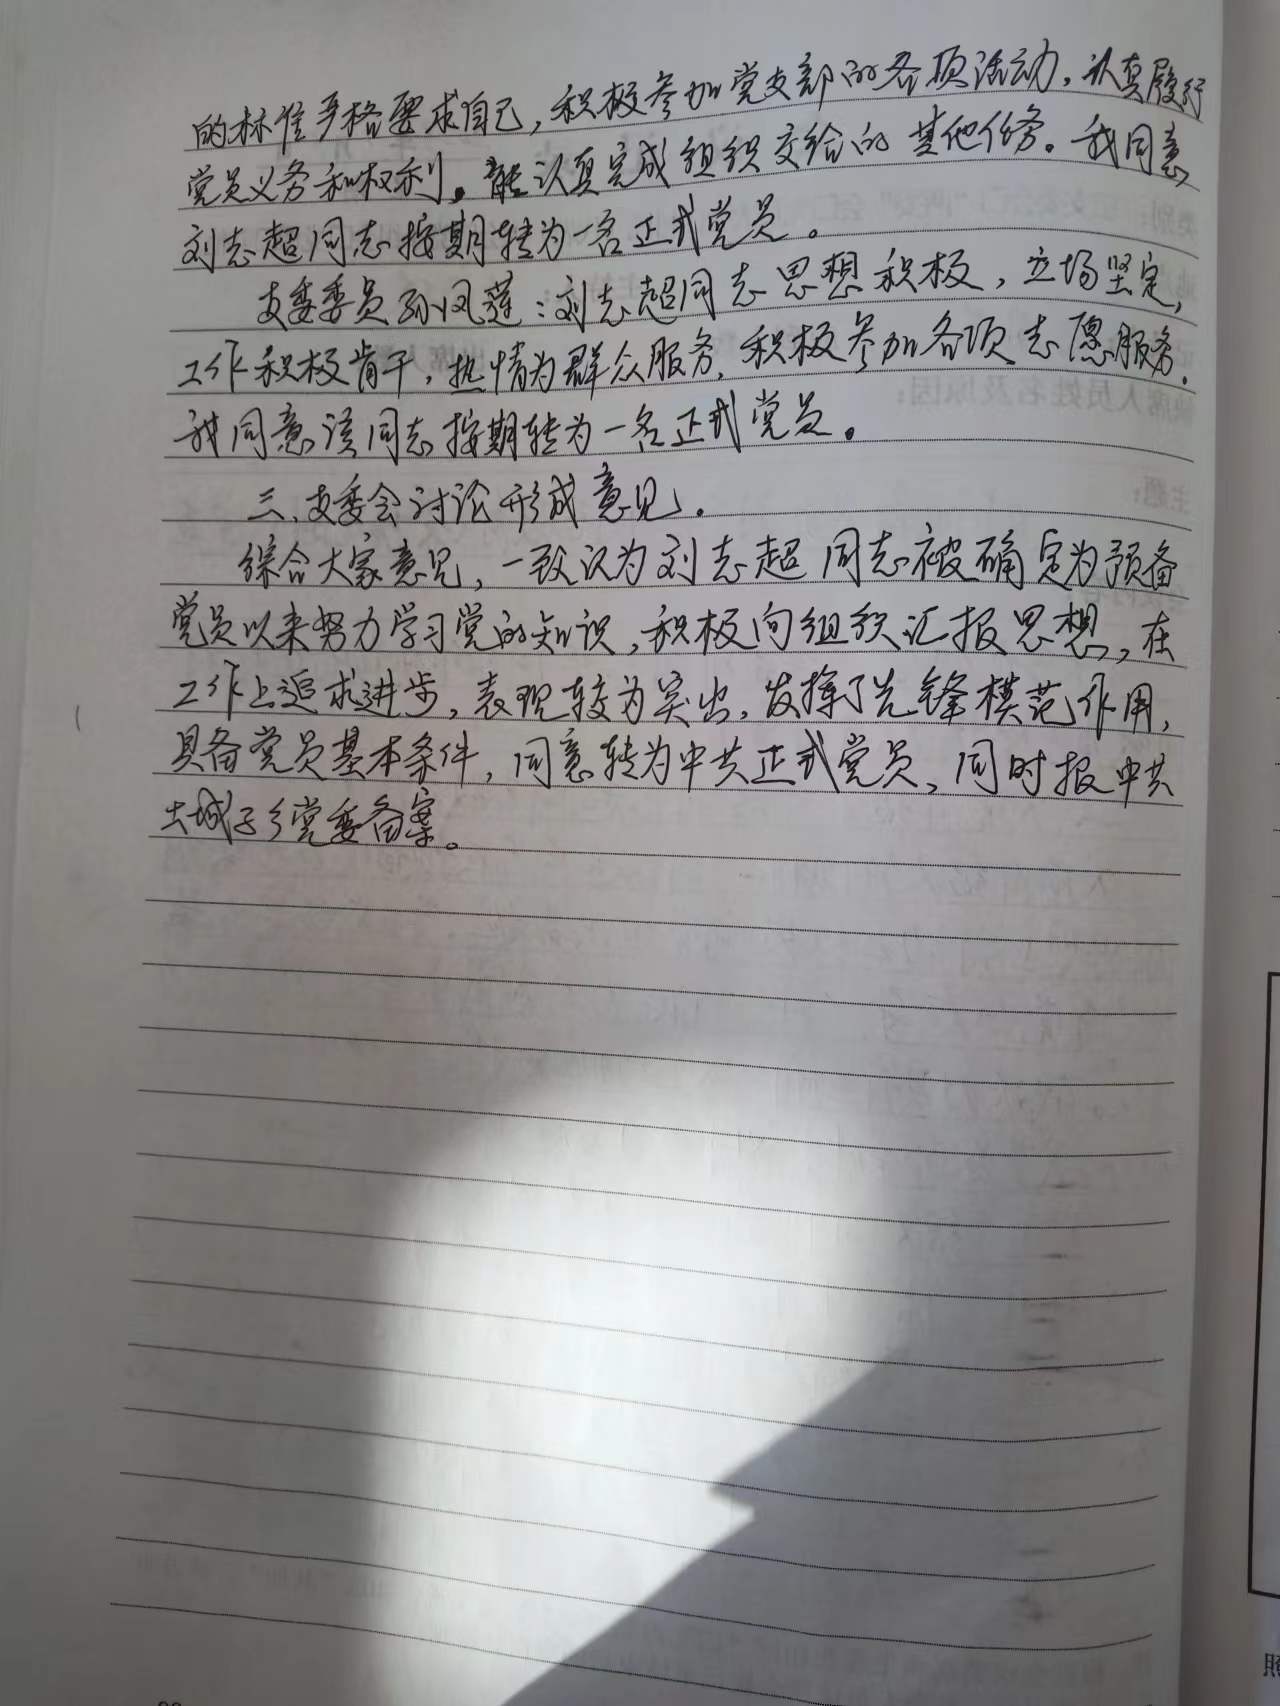 的标准严格要求自己，积极参加党支部的各项活动，认真履行
党员义务和权利。能认真完成组织交给的其他任务。我同意
刘志超同志按期转为一名正式党员。
支委委员孙凤莲：刘志超同志思想积极，立场坚定，
工作积极肯干，热情为群众服务，积极参加各项志愿服务。
我同意该同志按期转为一名正式党员。
三、支委会讨论形成意见。
综合大家意见，一致认为刘志超同志被确定为预备
党员以来努力学习党的知识，积极向组织汇报思想，在
工作上追求进步，表现较为突出，发挥了先锋模范作用，
具备党员基本条件，同意转为中共正式党员，同时报中共
土城子乡党委备案。
照